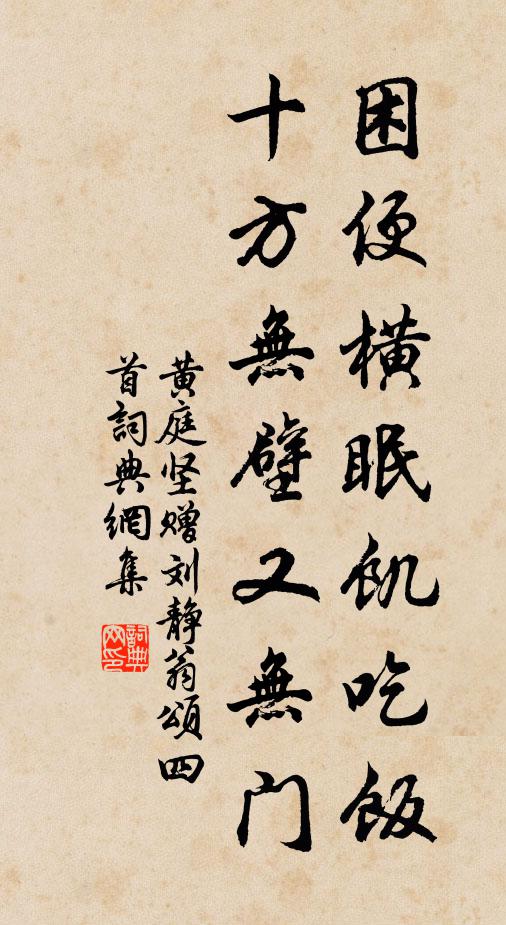 困便横眠飢吃飯
十方無壁又無门
黄庭坚赠刘静翁颂四
首詞典網集
詞典
网印